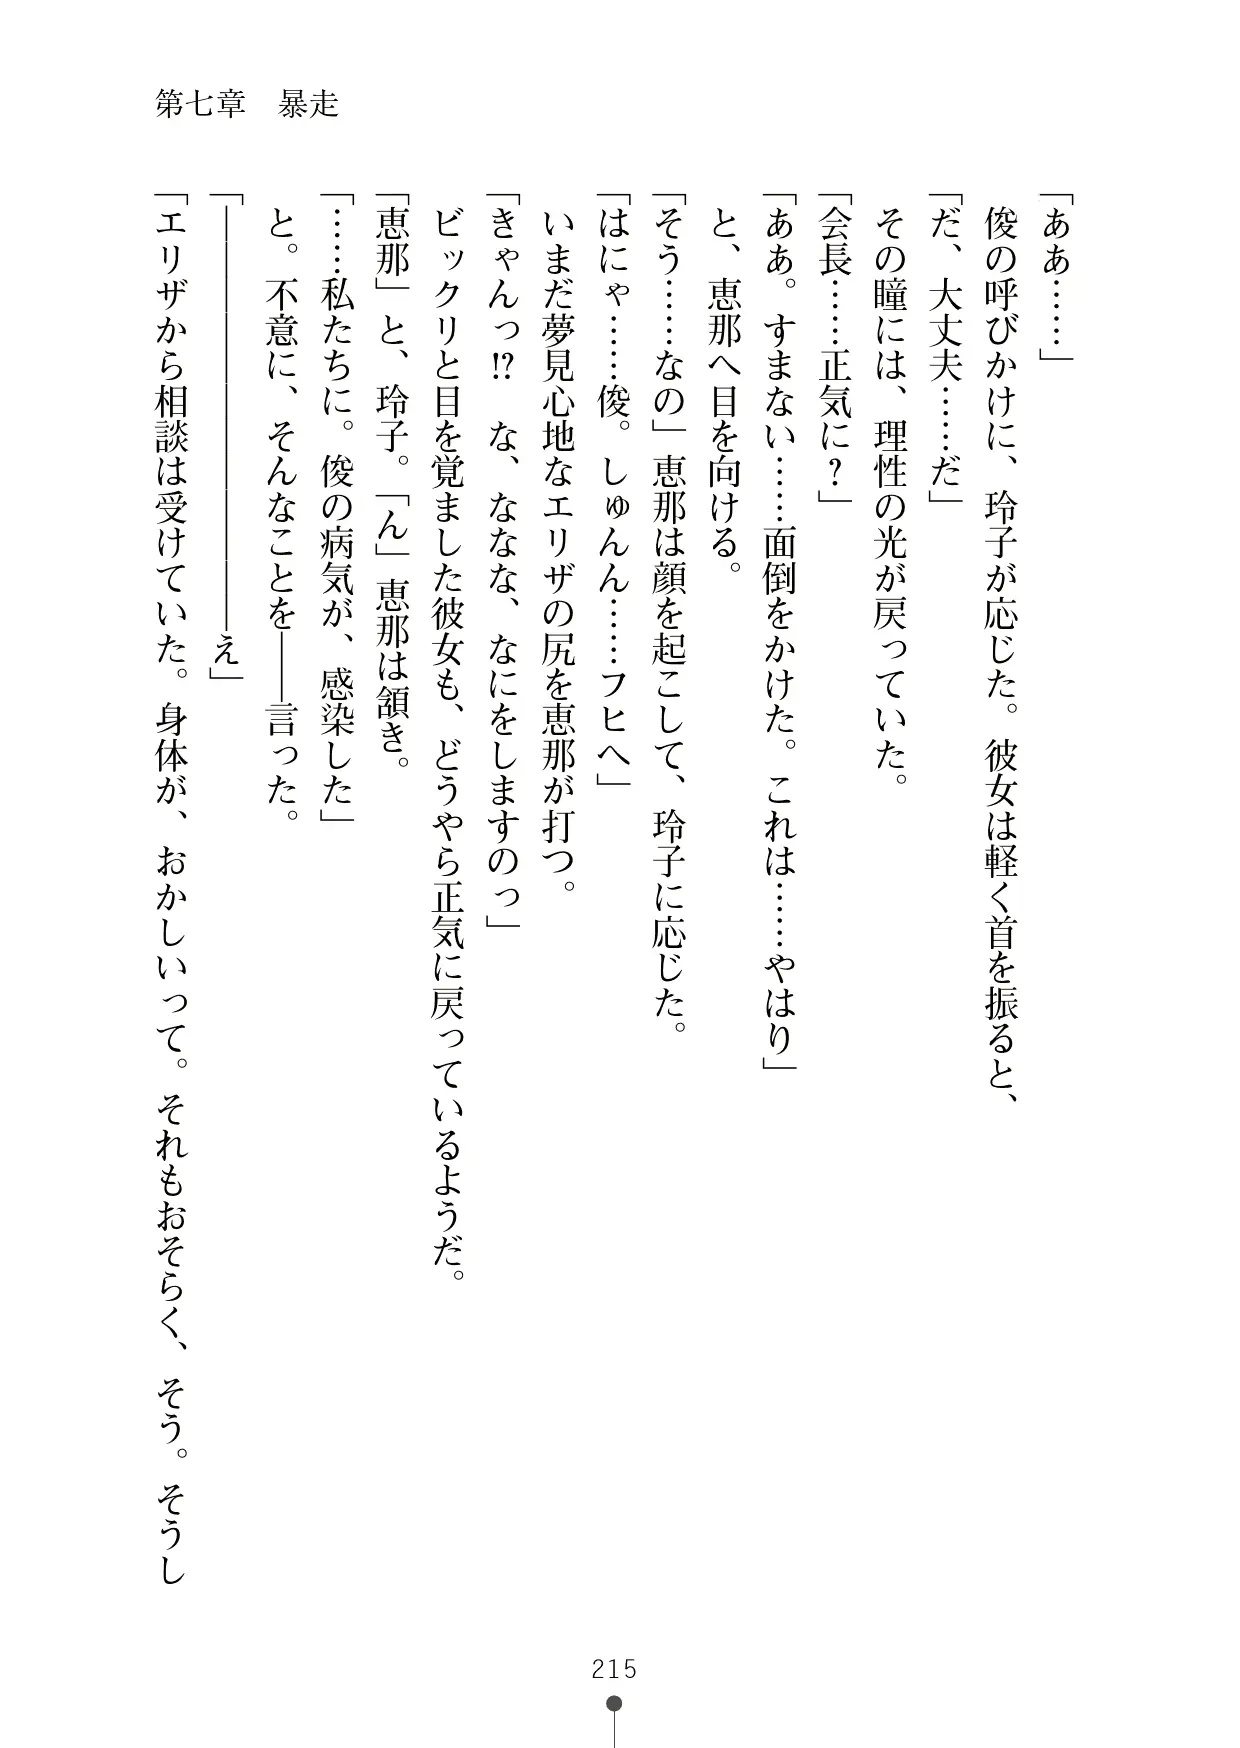 第七章　暴走
「ああ……」
　俊の呼びかけに、玲子が応じた。彼女は軽く首を振ると、
「だ、大丈夫……だ」
　その瞳には、理性の光が戻っていた。
「会長……正気に？」
「ああ。すまない……面倒をかけた。これは……やはり」
　と、恵那へ目を向ける。
「そう……なの」恵那は顔を起こして、玲子に応じた。
「はにゃ……俊。しゅんん……フヒヘ」
　いまだ夢見心地なエリザの尻を恵那が打つ。
「きゃんっ!?　な、ななな、なにをしますのっ」
　ビックリと目を覚ました彼女も、どうやら正気に戻っているようだ。
「恵那」と、玲子。「ん」恵那は頷き。
「……私たちに。俊の病気が、感染した」
　と。不意に、そんなことを――言った。
「――――――――――――え」
「エリザから相談は受けていた。身体が、おかしいって。それもおそらく、そう。そうし
215